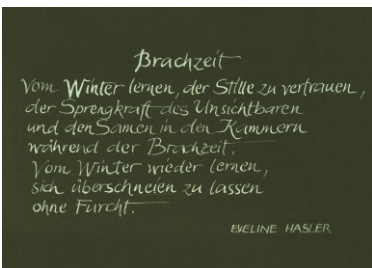 Brachzeit
Vom Winter lernen, der Stille zu vertrauen,
der Sprengkraft des Unsichtbaren
und den Samen in den Kammern
während der Brachzeit.
Vom Winter wieder lernen,
sich überschneien zu lassen
ohne Furcht.
EVELINE HASLER